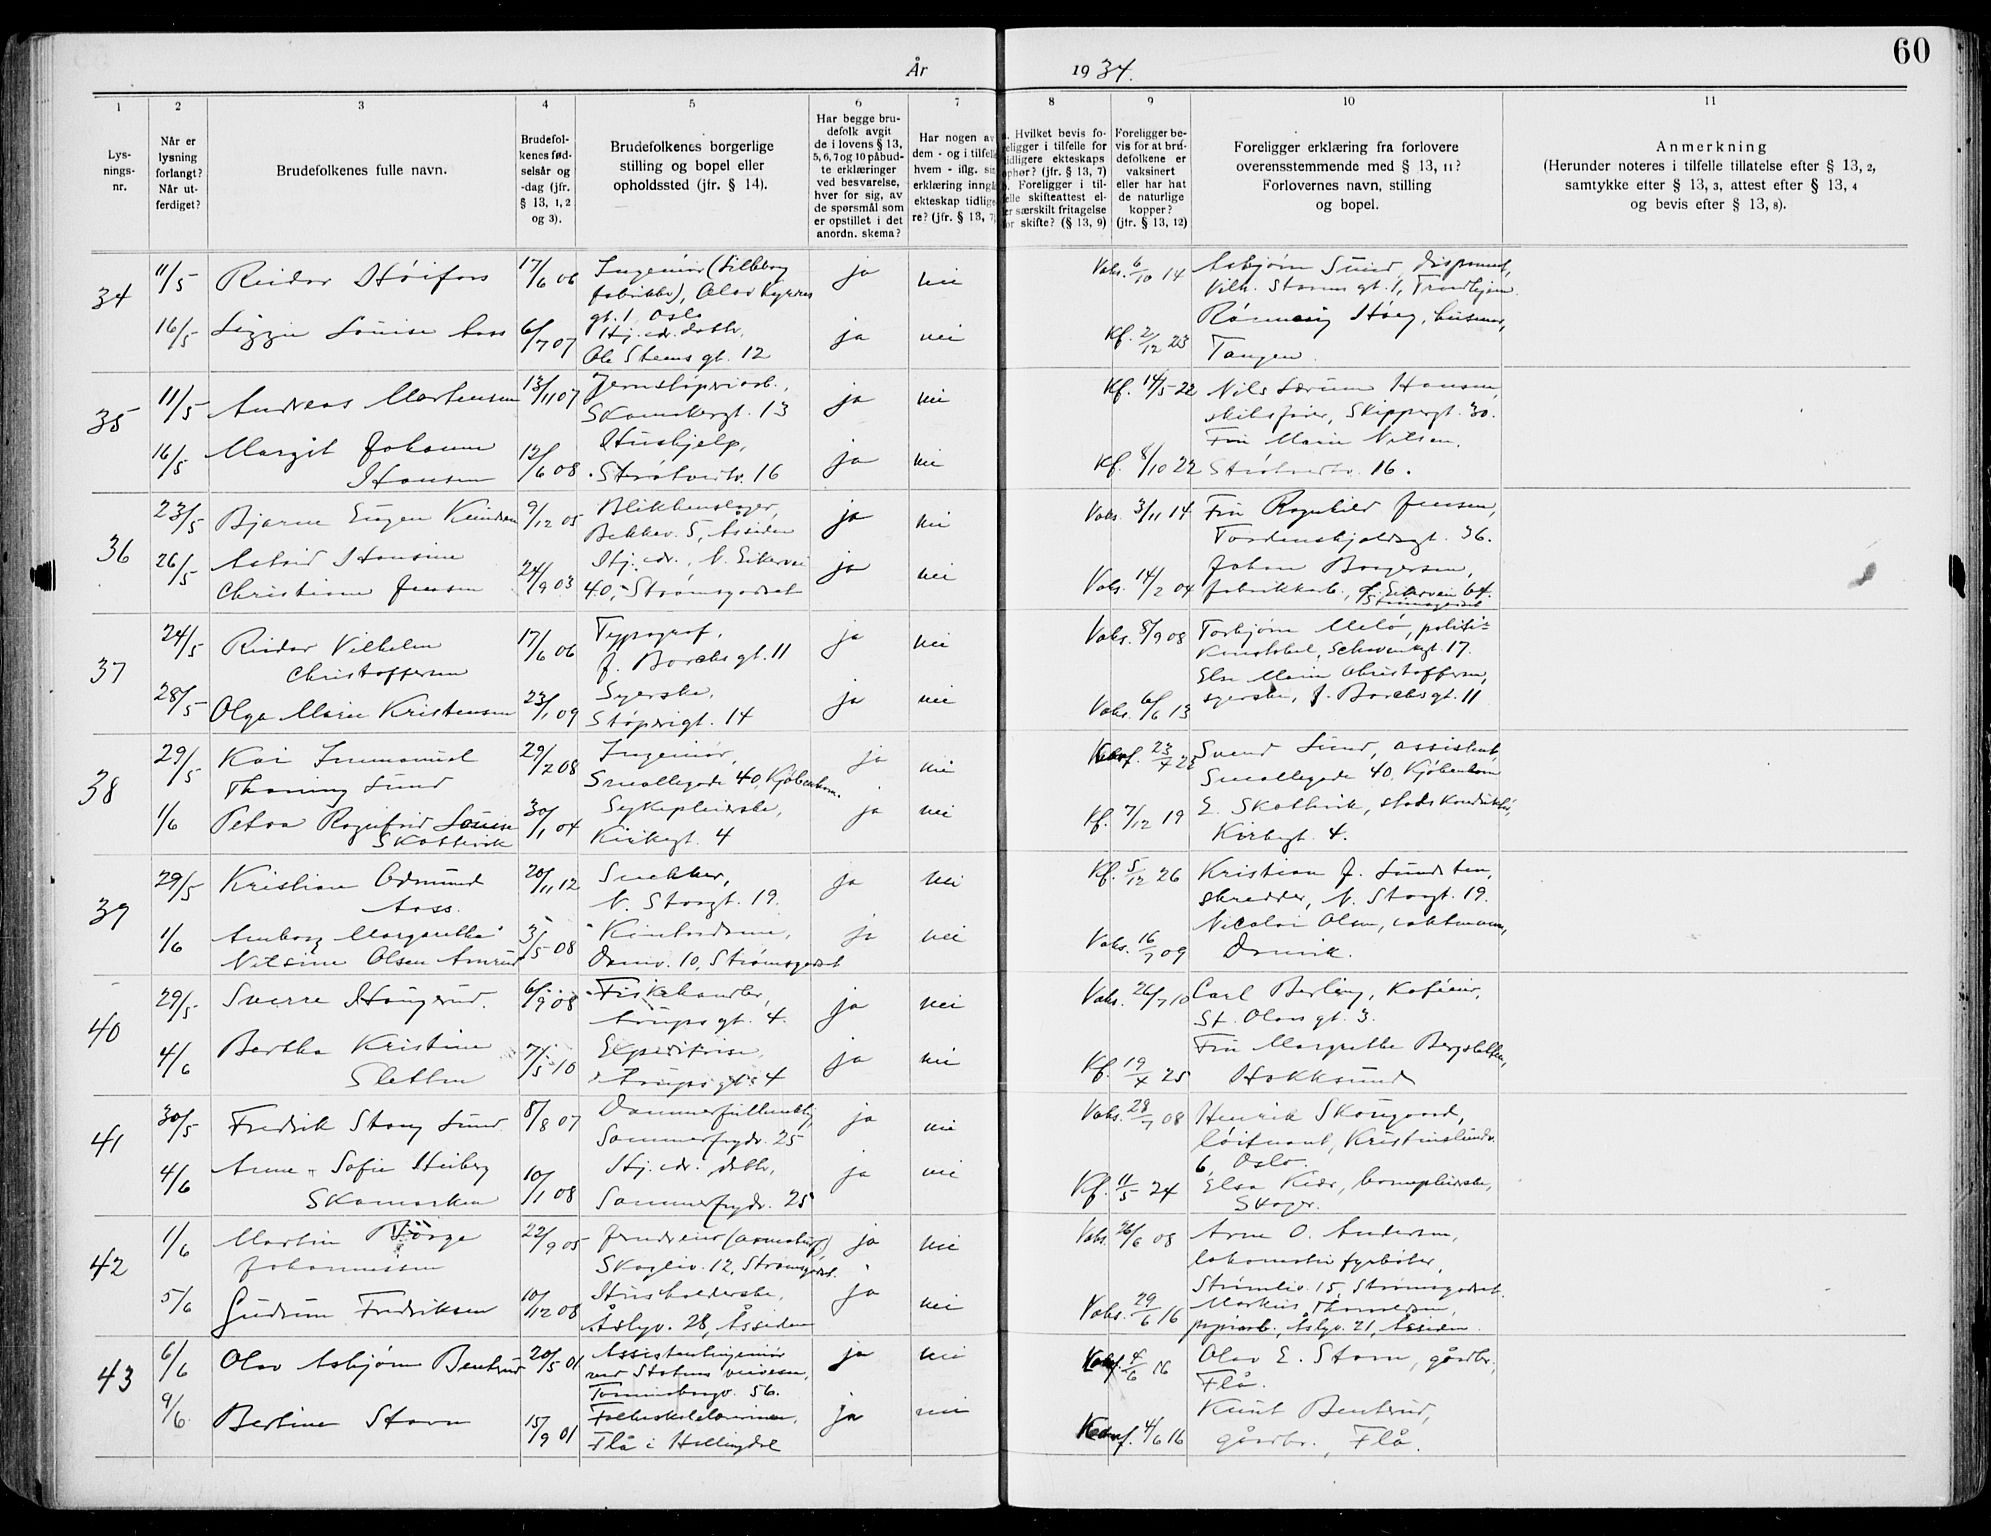 60
År 1934.
1 2 3 4 5 6 7 8 9 10 11
Lysningsnr.
Når er lysning forlangt? Når utferdiget?
Brudefolkenes fulle navn.
Brudefolkenes fødselsår og -dag (jfr. § 13, 1, 2 og 3).
Brudefolkenes borgerlige stilling og bopel eller opholdssted (jfr. § 14).
Har begge brudefolk avgit de i lovens § 13, 5, 6, 7 og 10 påbudte erklæringer ved besvarelse, hver for sig, av de spørsmål som er opstillet i det anordn. skema?
Har nogen av dem - og i tilfelle hvem - iflg. sin erklæring inngått ekteskap tidligere? (jfr. § 13, 7)
Hvilket bevis foreligger i tilfelle for tidligere ekteskaps ophør? (jfr. § 13, 7) Foreligger i tilfelle skifteattest eller særskilt fritagelse for skifte? (§ 13, 9)
Foreligger bevis for at brudefolkene er vaksinert eller har hat de naturlige kopper? (jfr. § 13, 12)
Foreligger erklæring fra forlovere overensstemmende med § 13, 11? Forlovernes navn, stilling og bopel.
Anmerkning (Herunder noteres i tilfelle tillatelse efter § 13, 2, samtykke efter § 13, 3, attest efter § 13, 4 og bevis efter § 13, 8).
34 11/5 Reidar Høifors 17/6 06 Ingeniør (Lilleborg ja nei Vaks. 6/10 14 Asbjørn Sund, disponent,
fabrikker), Olav Kyrres Vilh. Storms gt. 1, Trondhjem.
gt. 1, Oslo Høeg,
16/5 Lizzie Louise Aass 6/7 07 Hj. v. dattr. ja nei Kf. 2/12 23
Ole Steens gt. 12 Tangen.
35 11/5 Andreas Martensen 13/11 07 Jernstøperiarb., ja nei Kf. 14/5 22 Nils Lærum Hansen,
gt. 13 Skippergt. 30.
16/5 Margit Johanne Hushjelp, Fru Marie Nilsen.
Hansen 12/6 08 16 ja nei Kf. 8/10 22 16.
36 23/5 Bjarne Eugen Knudsen 9/12 05 Blikkenslager, ja nei Vaks. 3/11 14 Fru Ragnhild Jensen,
Bekkev. 5, Åssiden Tordenskjoldsgt. 36.
26/5 Astrid Hansine Hj. v., N. Eikervei Johan Borgersen,
Christiane Jensen 24/9 03 40, Strømsgodset ja nei Vaks. 14/2 04 fabrikkarb., Eikervei 64.
Strømsgodset
37 24/5 Reidar Vilhelm 17/6 06 Typograf, ja nei Vaks. 8/9 08 Torbjørn Melø, politi-
Christoffersen J. Borchsgt. 11 konstabel, Schwenkgt. 17.
28/5 Olga Marie Kristensen 23/1 09 Syerske, ja nei Vaks. 6/6 13 Else Marie Christoffersen,
Støperigt. 14 syerske, J. Borchsgt. 11
38 29/5 Kai Immanuel 29/2 08 Ingeniør, ja nei 23/4 22 Svend Lund, assistent,
Thaning Lund Smallegade 40, Kjøbenhavn. Smallegade 40, Kjøbenhavn
1/6 Petra Ragnfrid Louise 30/1 04 Sykepleierske, ja nei Kf. 7/12 19 E. Skottvik, stadskonduktør,
Skottvik Kirkegt. 4 Kirkegt. 4.
39 29/5 Kristian Edmund 20/11 12 Snekker, ja nei Kf. 5/12 26 Kristian J. Lundsten,
Aass. N. Storgt. 19. skredder, N. Storgt. 19.
1/6 Amborg Margarethe 3/5 08 Kontordame, ja nei Vaks. 16/7 09 Nicolai Olsen, vaktmann,
Nilsine Olsen Amrud 10, Strømsgodset
40 29/5 Sverre Haugerud. 6/9 08 Fiskehandler, ja nei Vaks. 26/7 10 Carl Berling, Kaféeier,
Arupsgt. 4. St. Olavs gt. 3.
4/6 Bertha Kristine 7/5 10 Expeditrise, ja nei Kf. 19/4 25 Fru Margrethe Bergstølen,
Sletten Arupsgt. 4 Hokksund
41 30/5 Fredrik Stang Lund 8/8 07 Dommerfullmektig ja nei Vaks. 28/7 08 Henrik Skougaard,
Sommerfrydv. 25 løitnant, Kristinelundv.
4/6 Anne-Sofie Heiberg 10/1 08 Hj. v. dattr, ja nei Kf. 11/5 24 6, Oslo.
Skamarken Sommerfrydv. 25 Elsa Kiær, barnepleierske,
42 1/6 Martin Børge 22/9 05 ja nei Vaks. 26/6 08 Arne O. Andersen,
Johannessen Skogliv. 12, Strømsgodset. lokomotivfyrbøter,
5/6 Gudrun Fredriksen 10/12 08 Husholderske, ja nei Vaks. 29/6 16 Strømliv. 15, Strømsgodset.
Åsbyv. 28, Åssiden Markus Thoresen,
papirarb., Åsbyv. 21, Åssiden
43 6/6 Olav Asbjørn Bentrud 20/5 01 Assistentingeniør ja nei 4/6 16 Olav E. Stavn, gårdbr.
ved Statens veivesen, Flå.
Tomineborgv. 56.
9/6 Berline Stavn 15/9 01 Folkeskolelærerinne, ja nei Konf. 4/6 16 Knut Bentrud,
Flå i Hallingdal gårdbr., Flå.